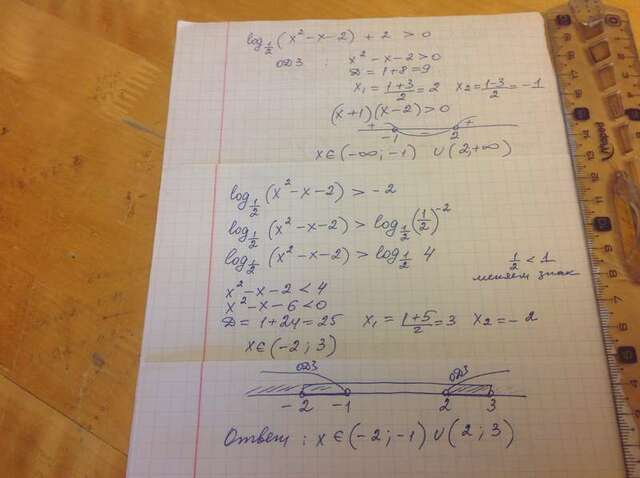 log½ (x² - x - 2) + 2 > 0
ОДЗ : x² - x - 2 > 0
D = 1 + 8 = 9
x₁ = (1+3)/2 = 2 x₂ = (1-3)/2 = -1
(x+1)(x-2) > 0
+ - +
-1 2
x ∈ (-∞; -1) ∪ (2, +∞)
log½ (x² - x - 2) > -2
log½ (x² - x - 2) > log½ (½)⁻²
log½ (x² - x - 2) > log½ 4
½ < 1
меняем знак
x² - x - 2 < 4
x² - x - 6 < 0
D = 1 + 24 = 25 x₁ = (1+5)/2 = 3 x₂ = -2
x ∈ (-2; 3)
ОДЗ ОДЗ
-2 -1 2 3
Ответ: x ∈ (-2; -1) ∪ (2; 3)
Maped